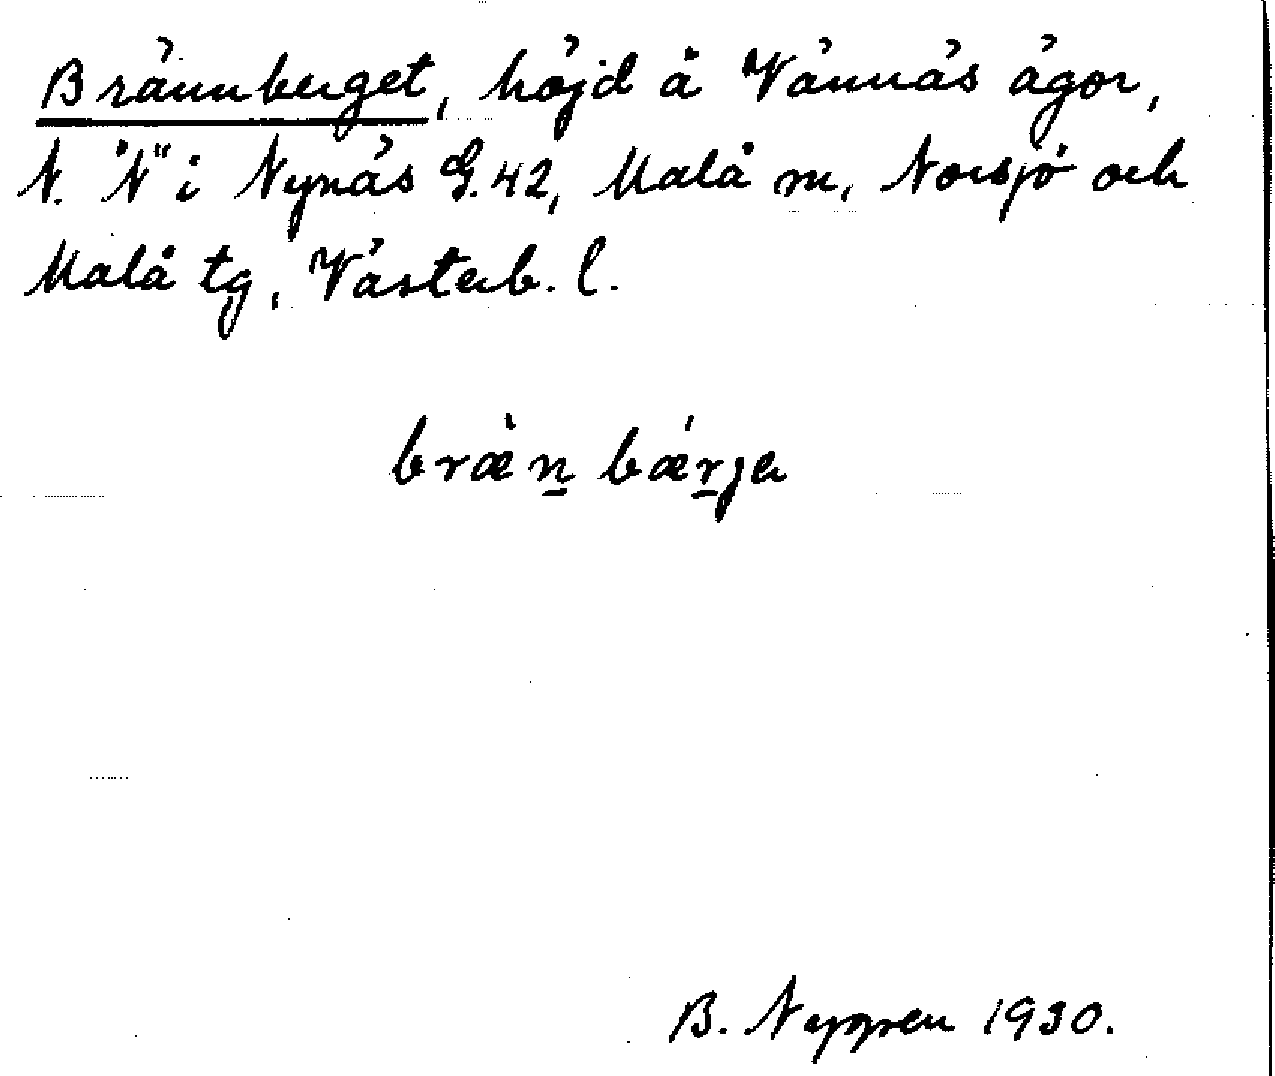 Brännberget, höjd å Vännäs ägor,
N. "N" i Nynäs G.42, Malå m, Norsjö och
Malå tg, Västerb. l.
bræ̀n̠ bǽr̠ja
B. Nygren 1930.